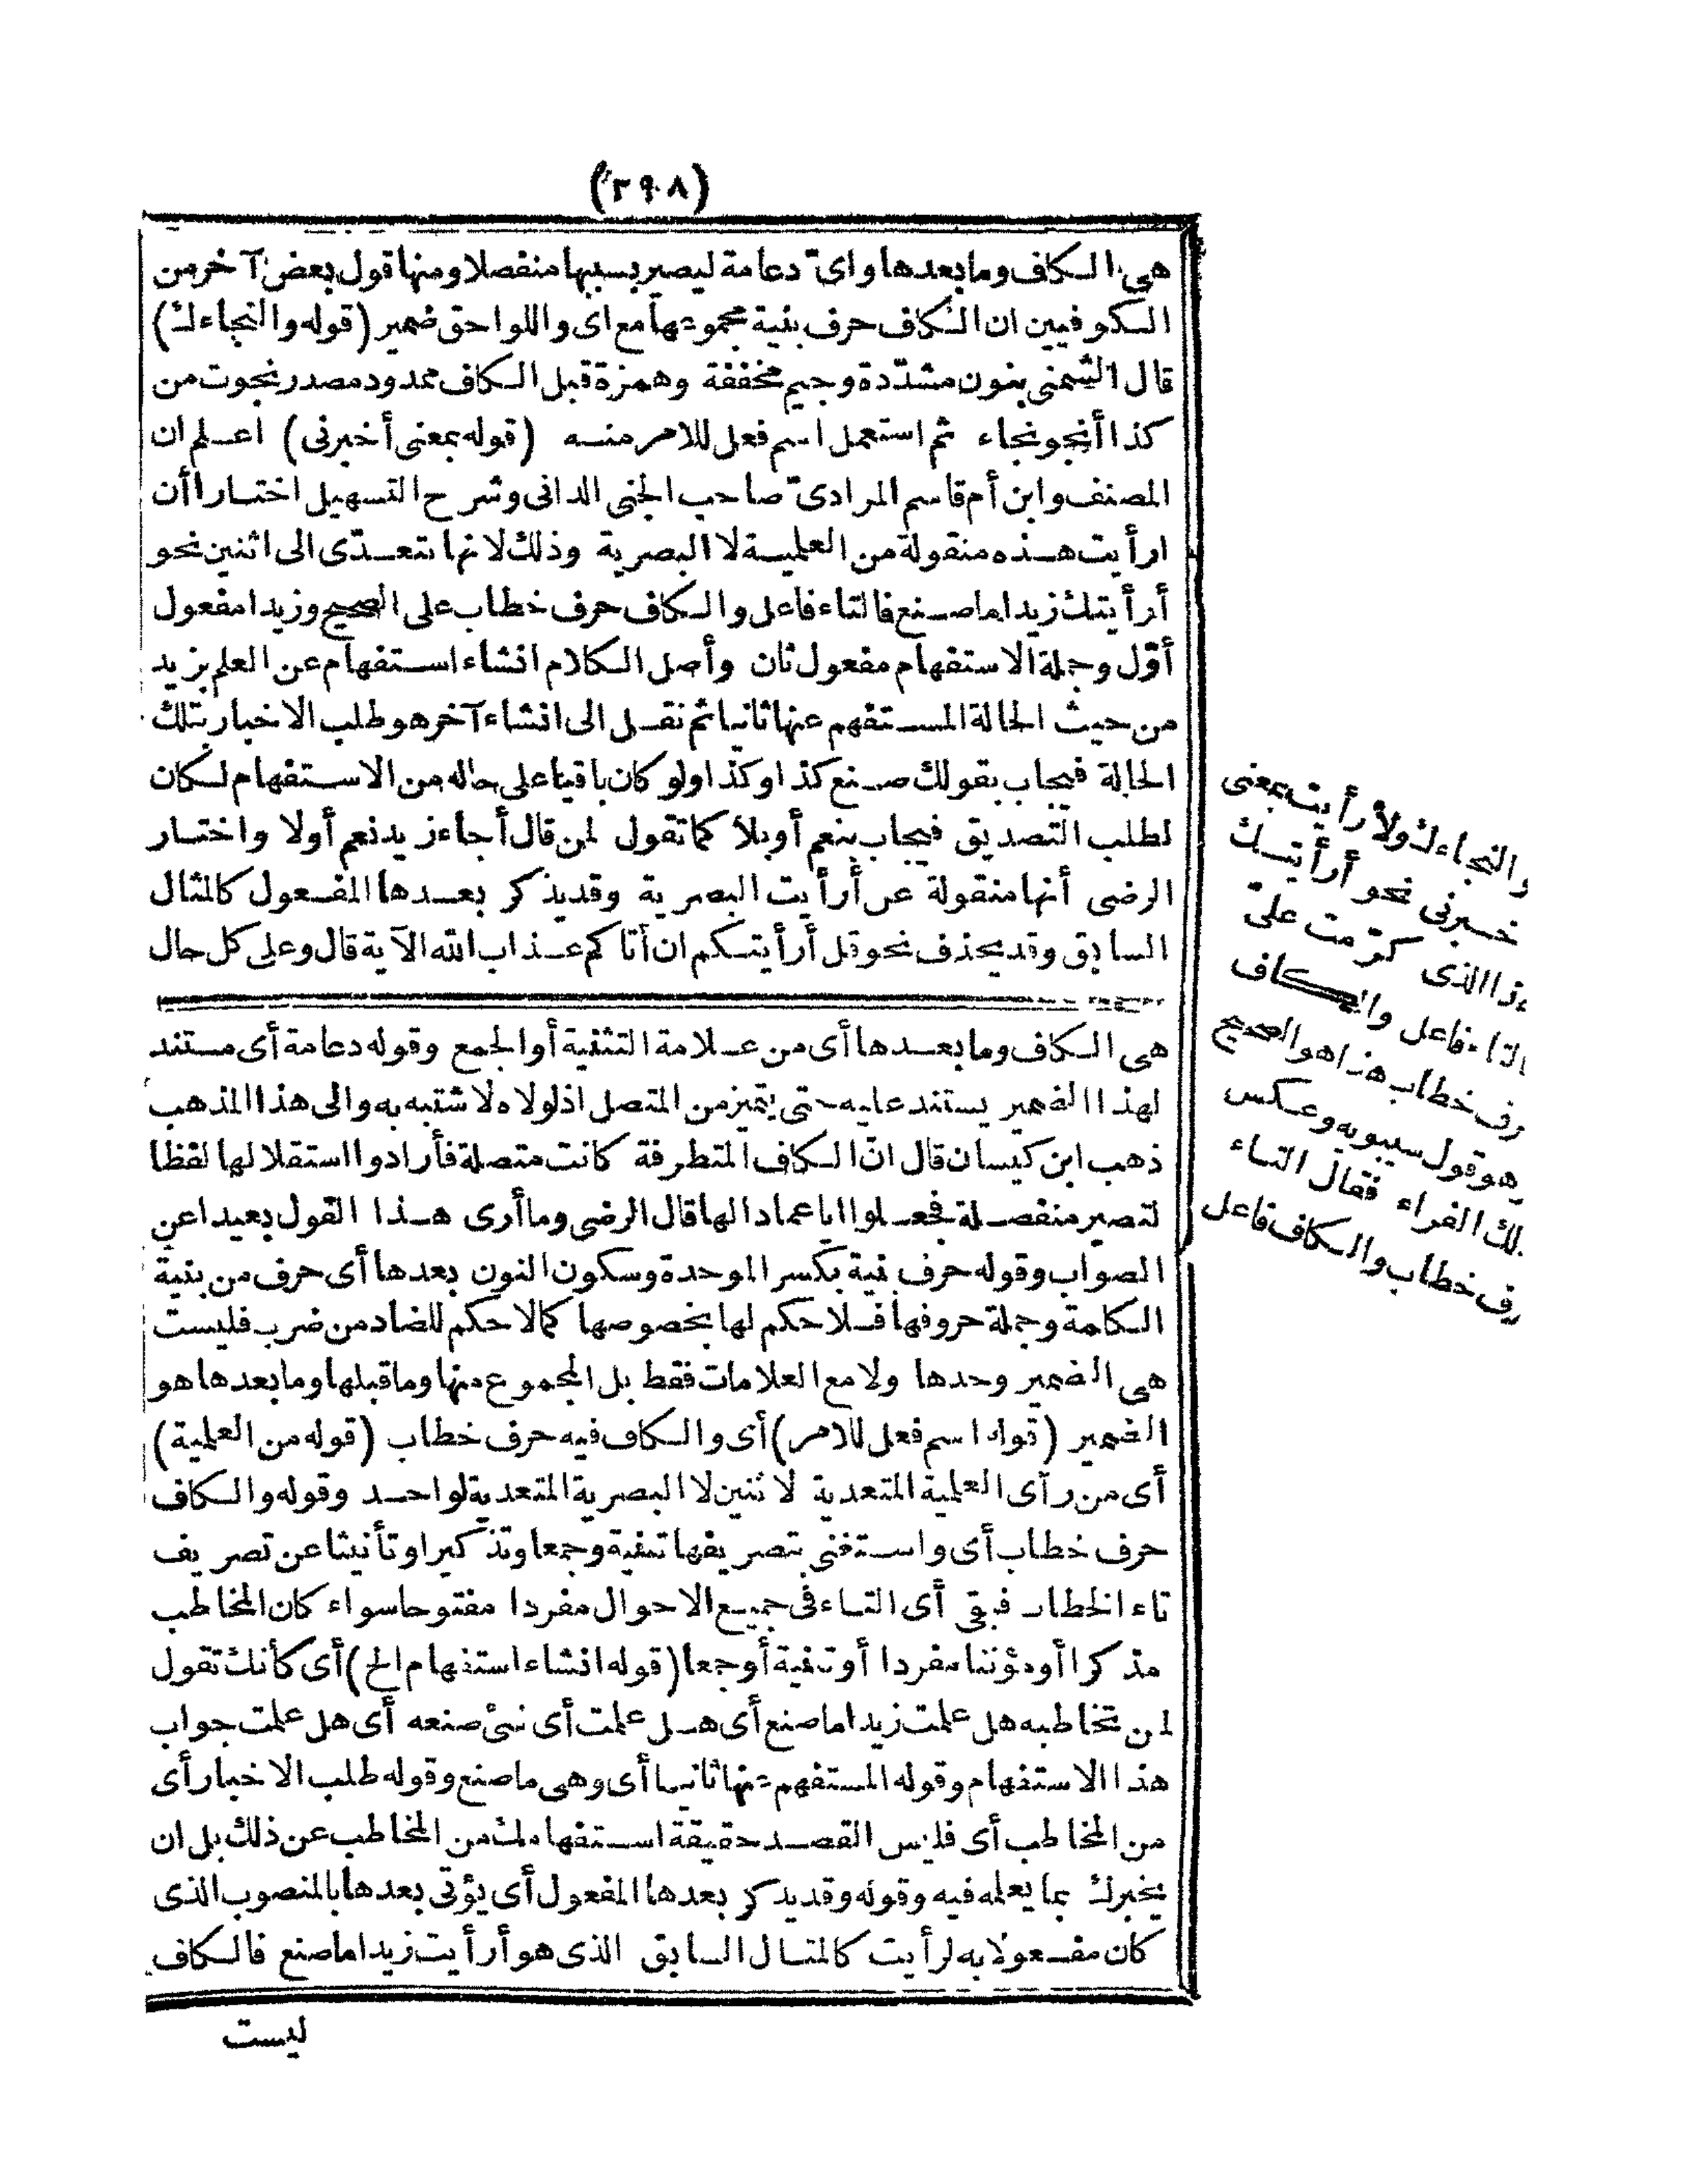 (٢٩٨)
هى الكاف وما بعدها واى دعامة ليصير بسببها منفصلا ومنها قول بعض آخر من
الكوفيين ان الكاف حرف بنية مجموعها مع اى واللواحق ضمير (قوله والنجاءك)
قال الشمنى بنون مشدّدة وجيم مخففة وهمزة قبل الكاف ممدود مصدر نجوت من
كذا أنجو نجاء ثم استعمل اسم فعل للامر منه (قوله بمعنى أخبرنى) اعلم ان
المصنف وابن أم قاسم المرادىّ صاحب الجنى الدانى وشرح التسهيل اختارا أن
ارأيت هذه منقولة من العلمية لا البصرية وذلك لانها تتعدّى الى اثنين نحو
أرأيتك زيدا ما صنع فالتاء فاعل والكاف حرف خطاب على الصحيح وزيدا مفعول
أوّل وجملة الاستفهام مفعول ثان وأصل الكلام انشاء استفهام عن العلم بزيد
من حيث الحالة المستفهم عنها ثانيا ثم نقل الى انشاء آخر هو طلب الاخبار بتلك
الحالة فيجاب بقولك صنع كذا وكذا ولو كان باقيا على حاله من الاستفهام لكان
لطلب التصديق فيجاب بنعم أو بلا كما تقول لمن قال أجاء زيد نعم أو لا واختار
الرضى أنها منقولة عن أرأيت البصرية وقد يذكر بعدها المفعول كالمثال
السابق وقد يحذف نحو قل أرأيتكم ان أتاكم عذاب الله الآية قال وعلى كل حال
والنجاءك ولأرأيت بمعنى
خبرنى نحو أرأيتك
ذا الذى كرّمت علىّ
التاء فاعل والكاف
رف خطاب هذا هو الصحيح
هو قول سيبويه وعكس
لك الفراء فقال التاء
رف خطاب والكاف فاعل
هى الكاف وما بعدها أى من علامة التثنية أو الجمع وقوله دعامة أى مستند
لهذا الضمير يستند عليه حتى يتميز من المتصل اذ لولاه لاشتبه به والى هذا المذهب
ذهب ابن كيسان قال انّ الكاف المتطرفة كانت متصلة فأرادوا استقلالها لفظا
لتصير منفصلة فجعلوا ايا عمادا لها قال الرضى وما أرى هذا القول بعيدا عن
الصواب وقوله حرف بنية بكسر الموحدة وسكون النون بعدها أى حرف من بنية
الكلمة وجملة حروفها فلا حكم لها بخصوصها كما لا حكم للضاد من ضرب فليست
هى الضمير وحدها ولا مع العلامات فقط بل المجموع منها وما قبلها وما بعدها هو
الضمير (قوله اسم فعل للامر) أى والكاف فيه حرف خطاب (قوله من العلمية)
أى من رأى العلمية المتعدية لاثنين لا البصرية المتعدية لواحد وقوله والكاف
حرف خطاب أى واستغنى بتصريفها تثنية وجمعا وتذكيرا وتأنيثا عن تصريف
تاء الخطاب فبقى أى التاء فى جميع الاحوال مفردا مفتوحا سواء كان المخاطب
مذكرا أو مؤنثا مفردا أو تثنية أو جمعا (قوله انشاء استفهام الخ) أى كأنك تقول
لمن تخاطبه هل علمت زيدا ما صنع أى هل علمت أى شئ صنعه أى هل علمت جواب
هذا الاستفهام وقوله المستفهم عنها ثانيا أى وهى ما صنع وقوله طلب الاخبار أى
من المخاطب أى فليس القصد حقيقة استفهامك من المخاطب عن ذلك بل ان
يخبرك بما يعلمه فيه وقوله وقد يذكر بعدها المفعول أى يؤتى بعدها بالمنصوب الذى
كان مفعولا به لرأيت كالمثال السابق الذى هو أرأيت زيدا ما صنع فالكاف
ليست